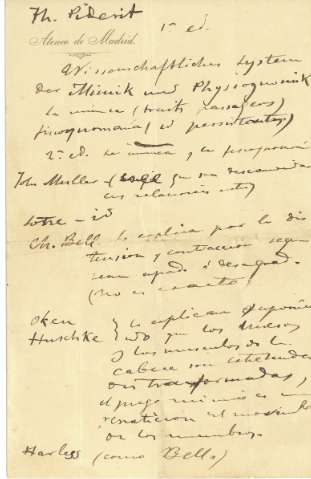 Th. Piderit
1ª ed.
Ateneo de Madrid.
Wissenschaftliches System
der Mimik und Physiognomik
la mímica (traits passagers)
fisiognomonia (id persistantes)
2ª ed. la mímica y la
Joh Muller - que son desconocidas
las relaciones
Lotze - id
Ch. Bell. lo explica por la dis
tensión y contracción segun
sean agrad. ó desagrad.
(No es exacto)
Oken
Huschke } lo explican suponien
do que los huesos
y los musculos de la
cabeza son
transformadas,
el juego mímico es una
repetición del movimiento
de los miembros.
Harless (como Bell)